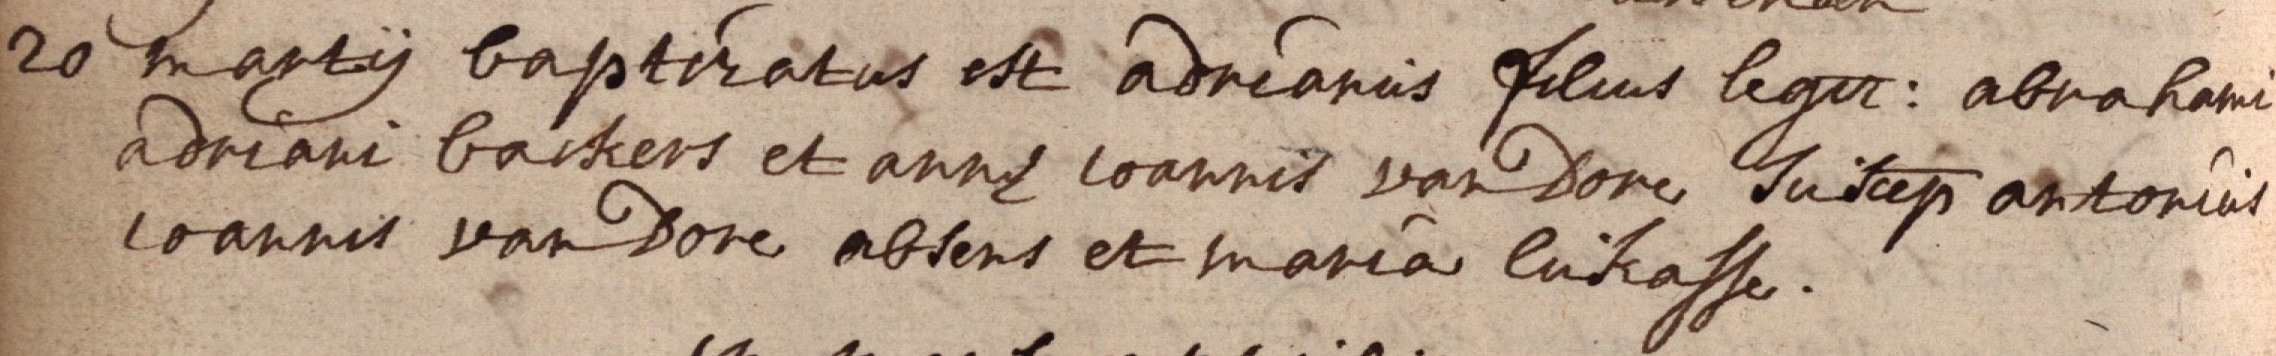 20 martij baptizatus est adrianus filius legit: abrahami
adriani backers et annę ioannis van Dore suscep antonius
ioannis van Dore absens et maria luikasse.